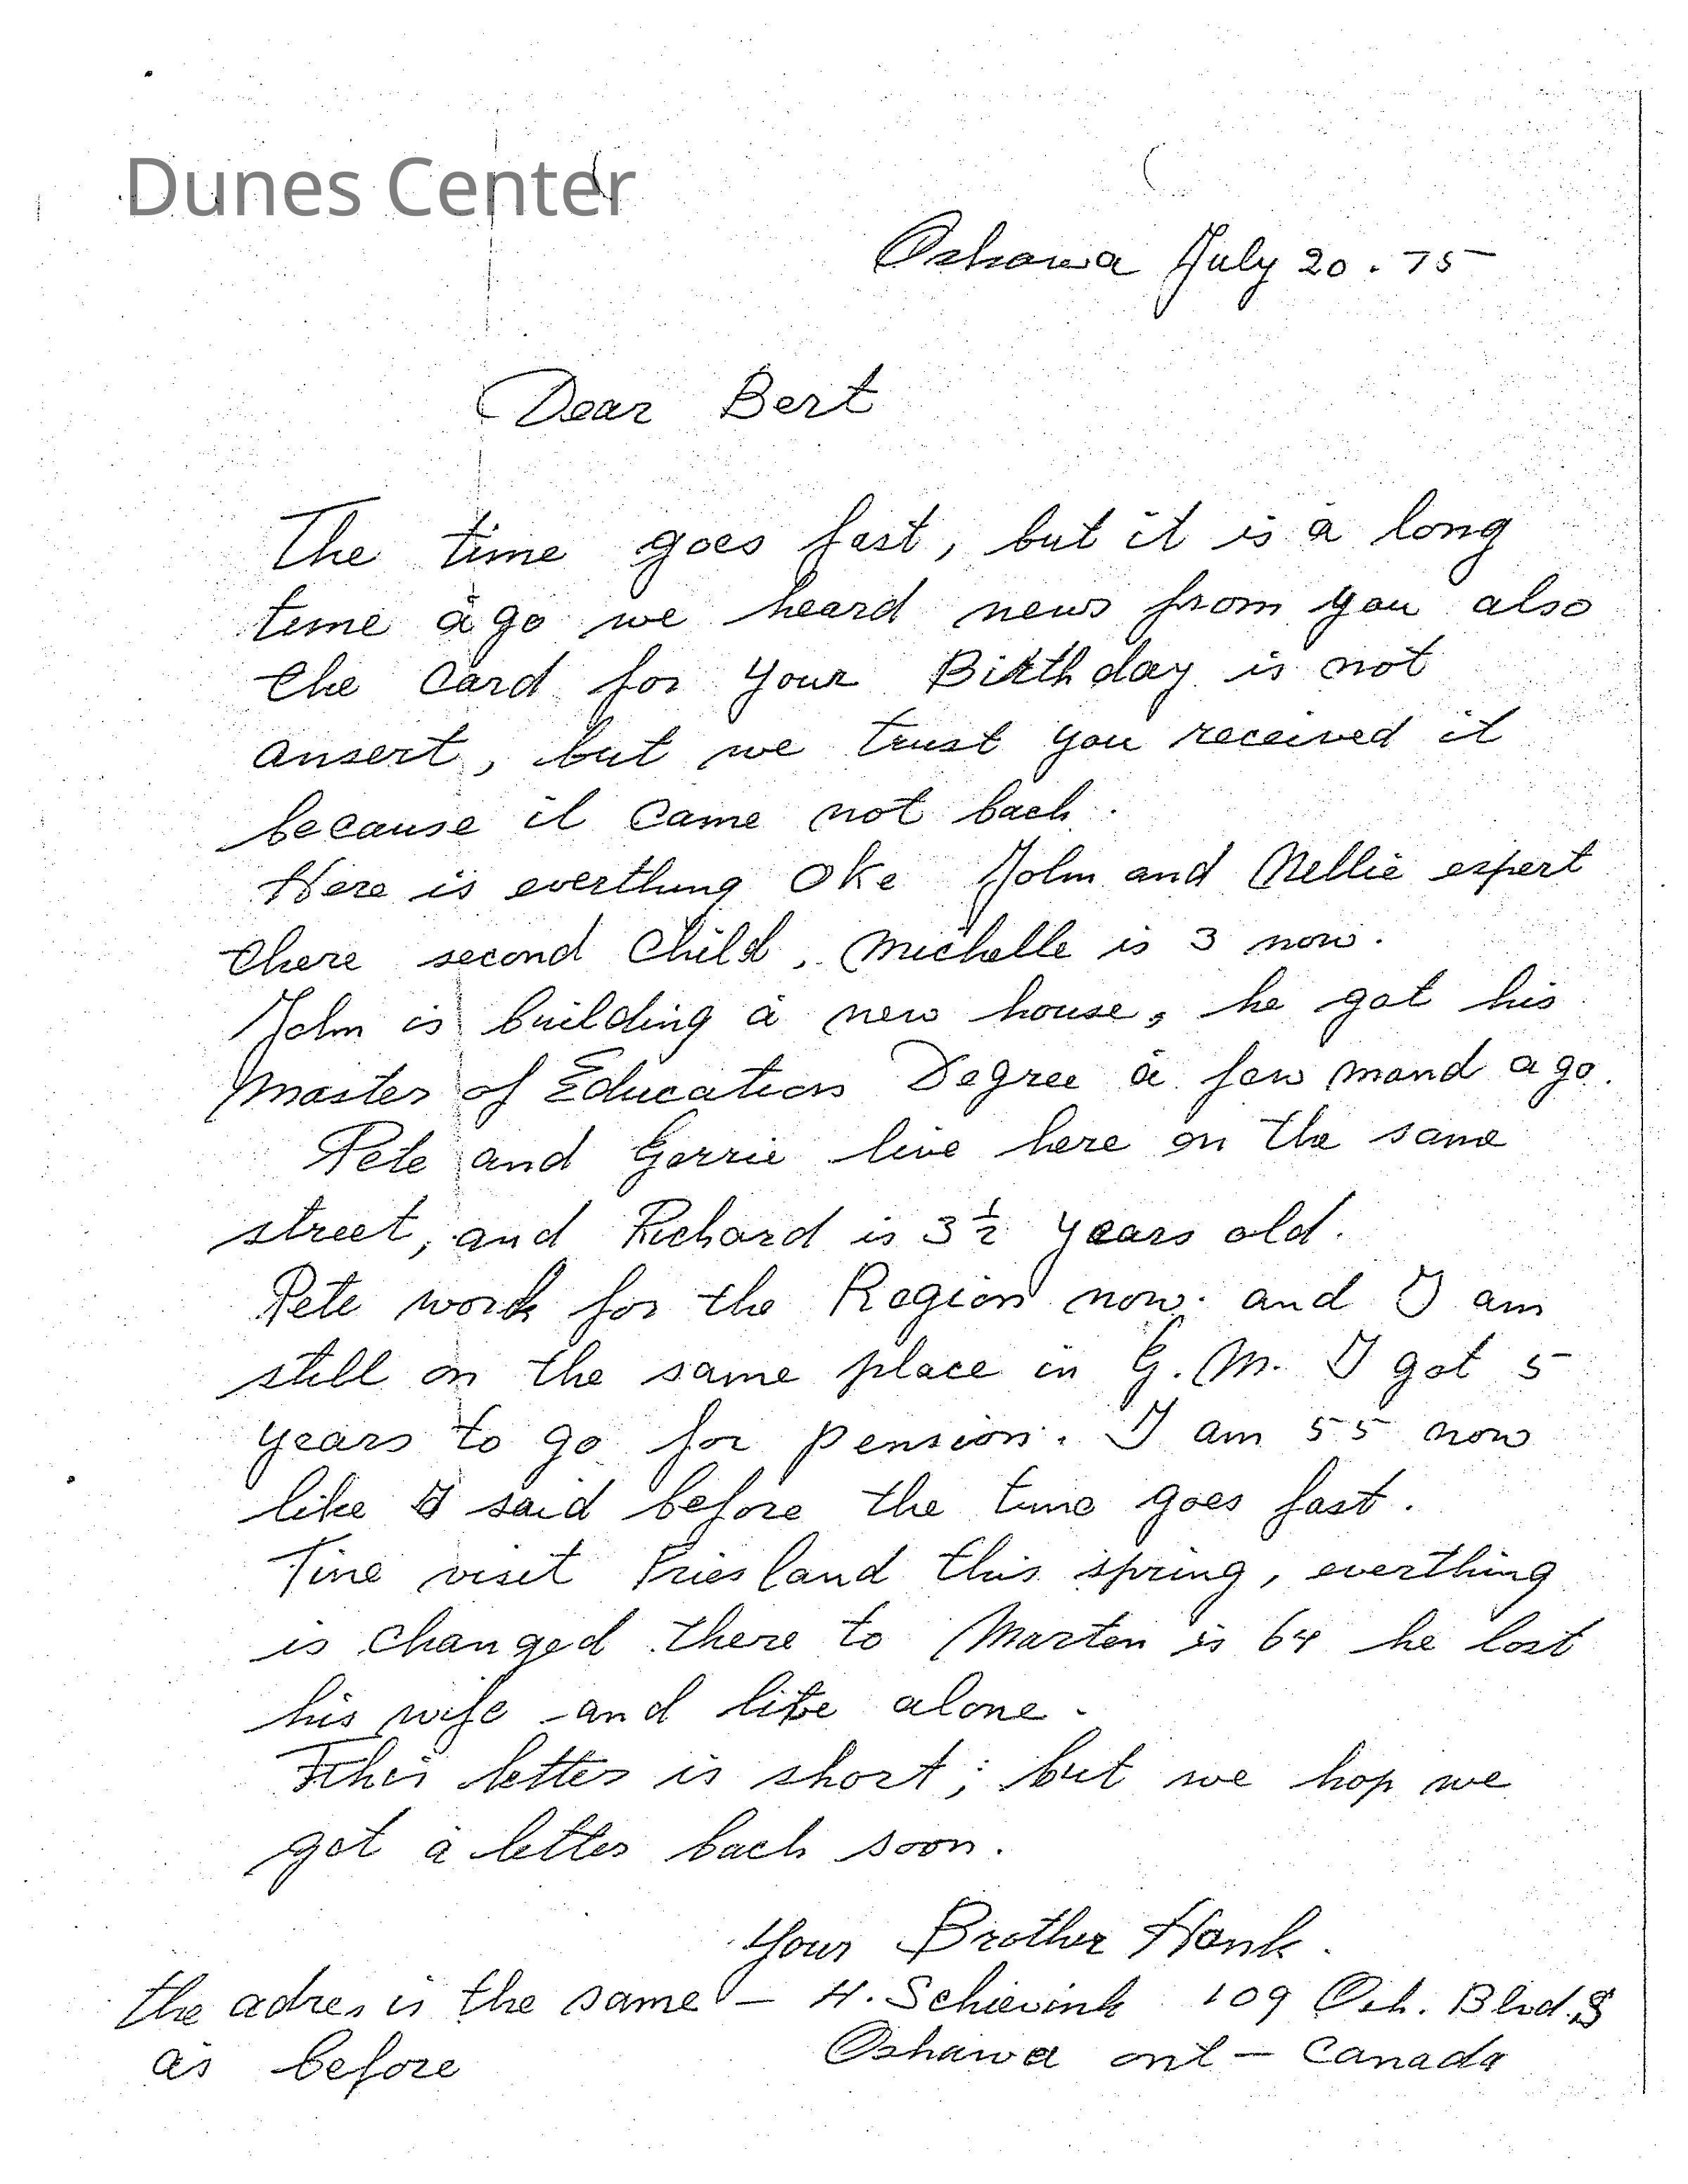 Dunes Center
Oshawa July 20 . 75
Dear Bert
The time goes fast, but it is a long
time ago we heard news from you also
the card for your Birthday is not
ansert, but we trust you received it
because it came not back.
Here is everthing oke John and Nellie expert
there second child, Michelle is 3 now.
John is building a new house, he got his
Master of Education Degree a few mand ago.
Pete and Gerrie live here on the same
street, and Richard is 3½ years old.
Pete work for the Region now. and I am
still on the same place in G.M. I got 5
years to go for pension. I am 55 now
like I said before the time goes fast.
Tine visit Friesland this spring, everthing
is changed there to Marten is 64 he lost
his wife and live alone.
This letter is short; but we hop we
get a letter back soon.
Your Brother Hank.
the adres is the same — H. Schievink 109 Osh. Blvd. S
as before Oshawa ont — Canada